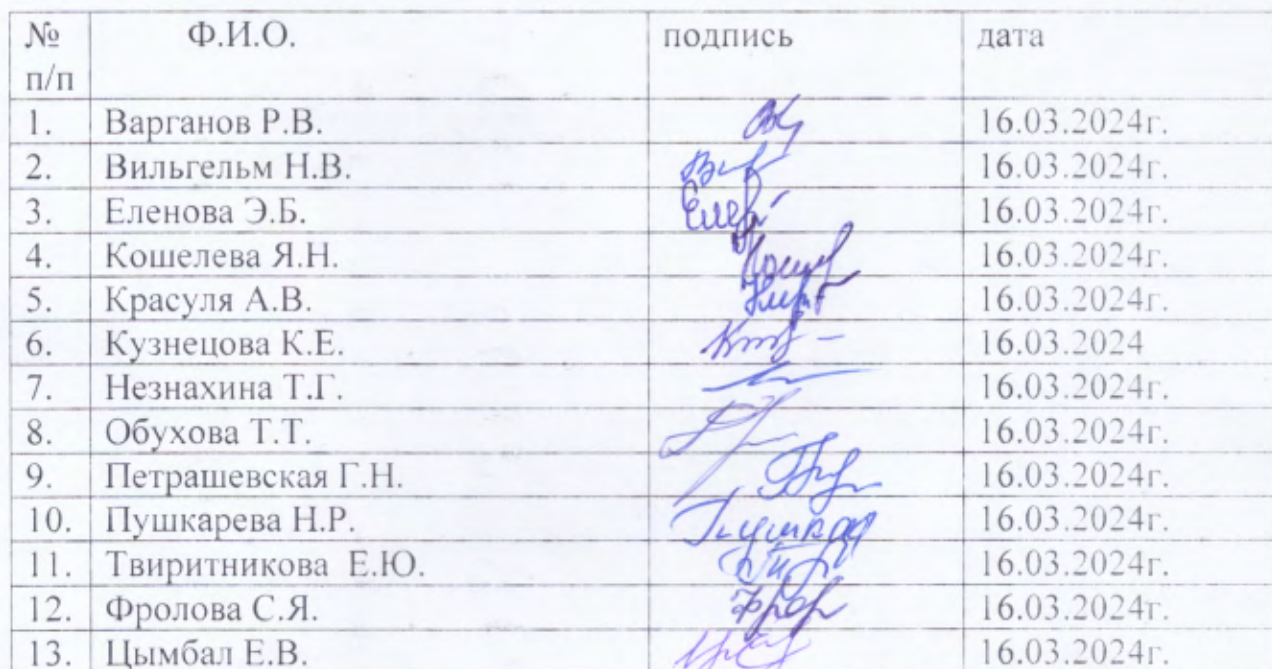 № п/п Ф.И.О. подпись дата
1. Варганов Р.В. 16.03.2024г.
2. Вильгельм Н.В. 16.03.2024г.
3. Еленова Э.Б. 16.03.2024г.
4. Кошелева Я.Н. 16.03.2024г.
5. Красуля А.В. 16.03.2024г.
6. Кузнецова К.Е. 16.03.2024
7. Незнахина Т.Г. 16.03.2024г.
8. Обухова Т.Т. 16.03.2024г.
9. Петрашевская Г.Н. 16.03.2024г.
10. Пушкарева Н.Р. 16.03.2024г.
11. Твиритникова Е.Ю. 16.03.2024г.
12. Фролова С.Я. 16.03.2024г.
13. Цымбал Е.В. 16.03.2024г.